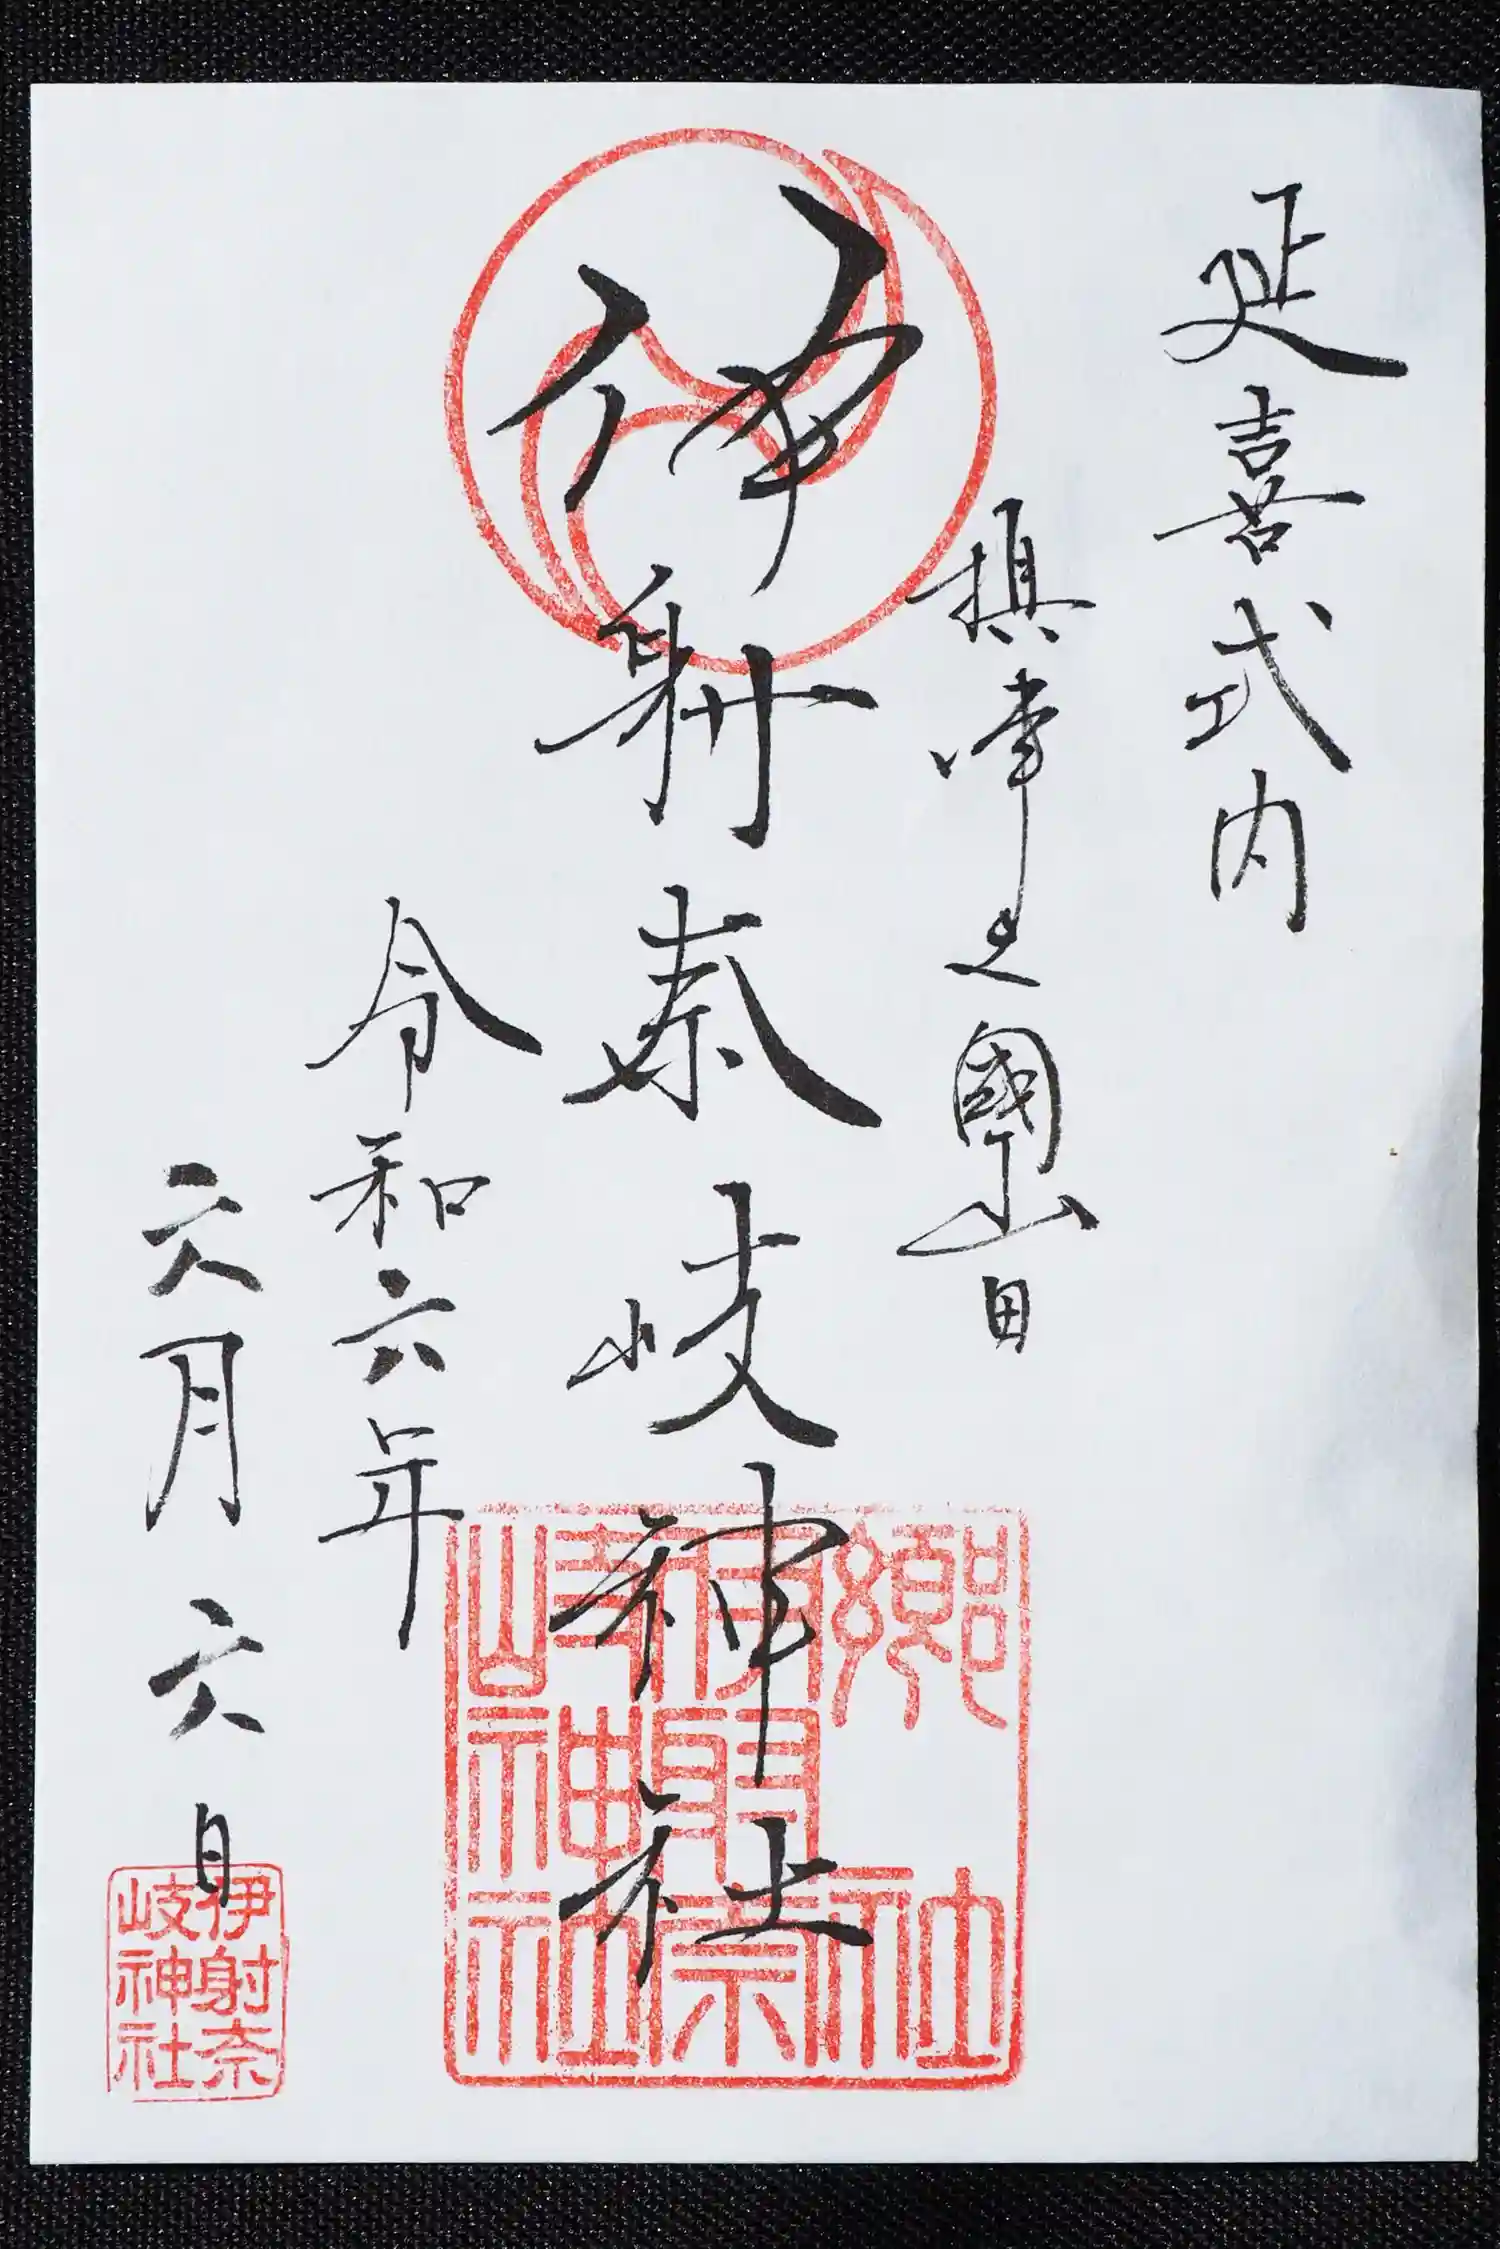 延喜式内
摂津之國山田
伊射奈岐神社
令和六年
六月六日
郷社
伊射奈
岐神社
伊射奈
岐神社